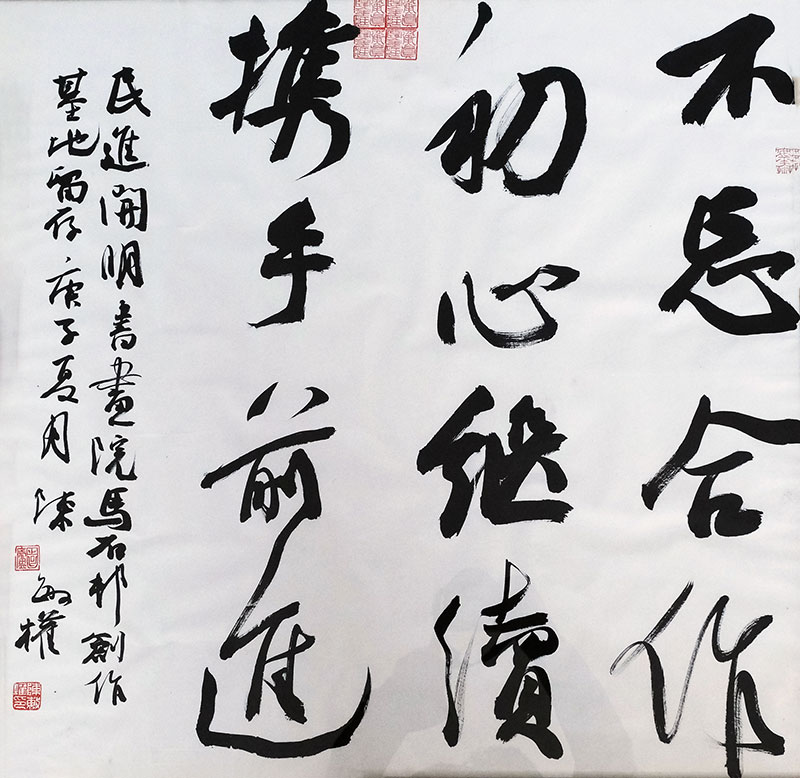 不忘合作
初心继續
携手前進
民進開明書畫院馬石邨創作
基地留存庚子夏月陳
敏權